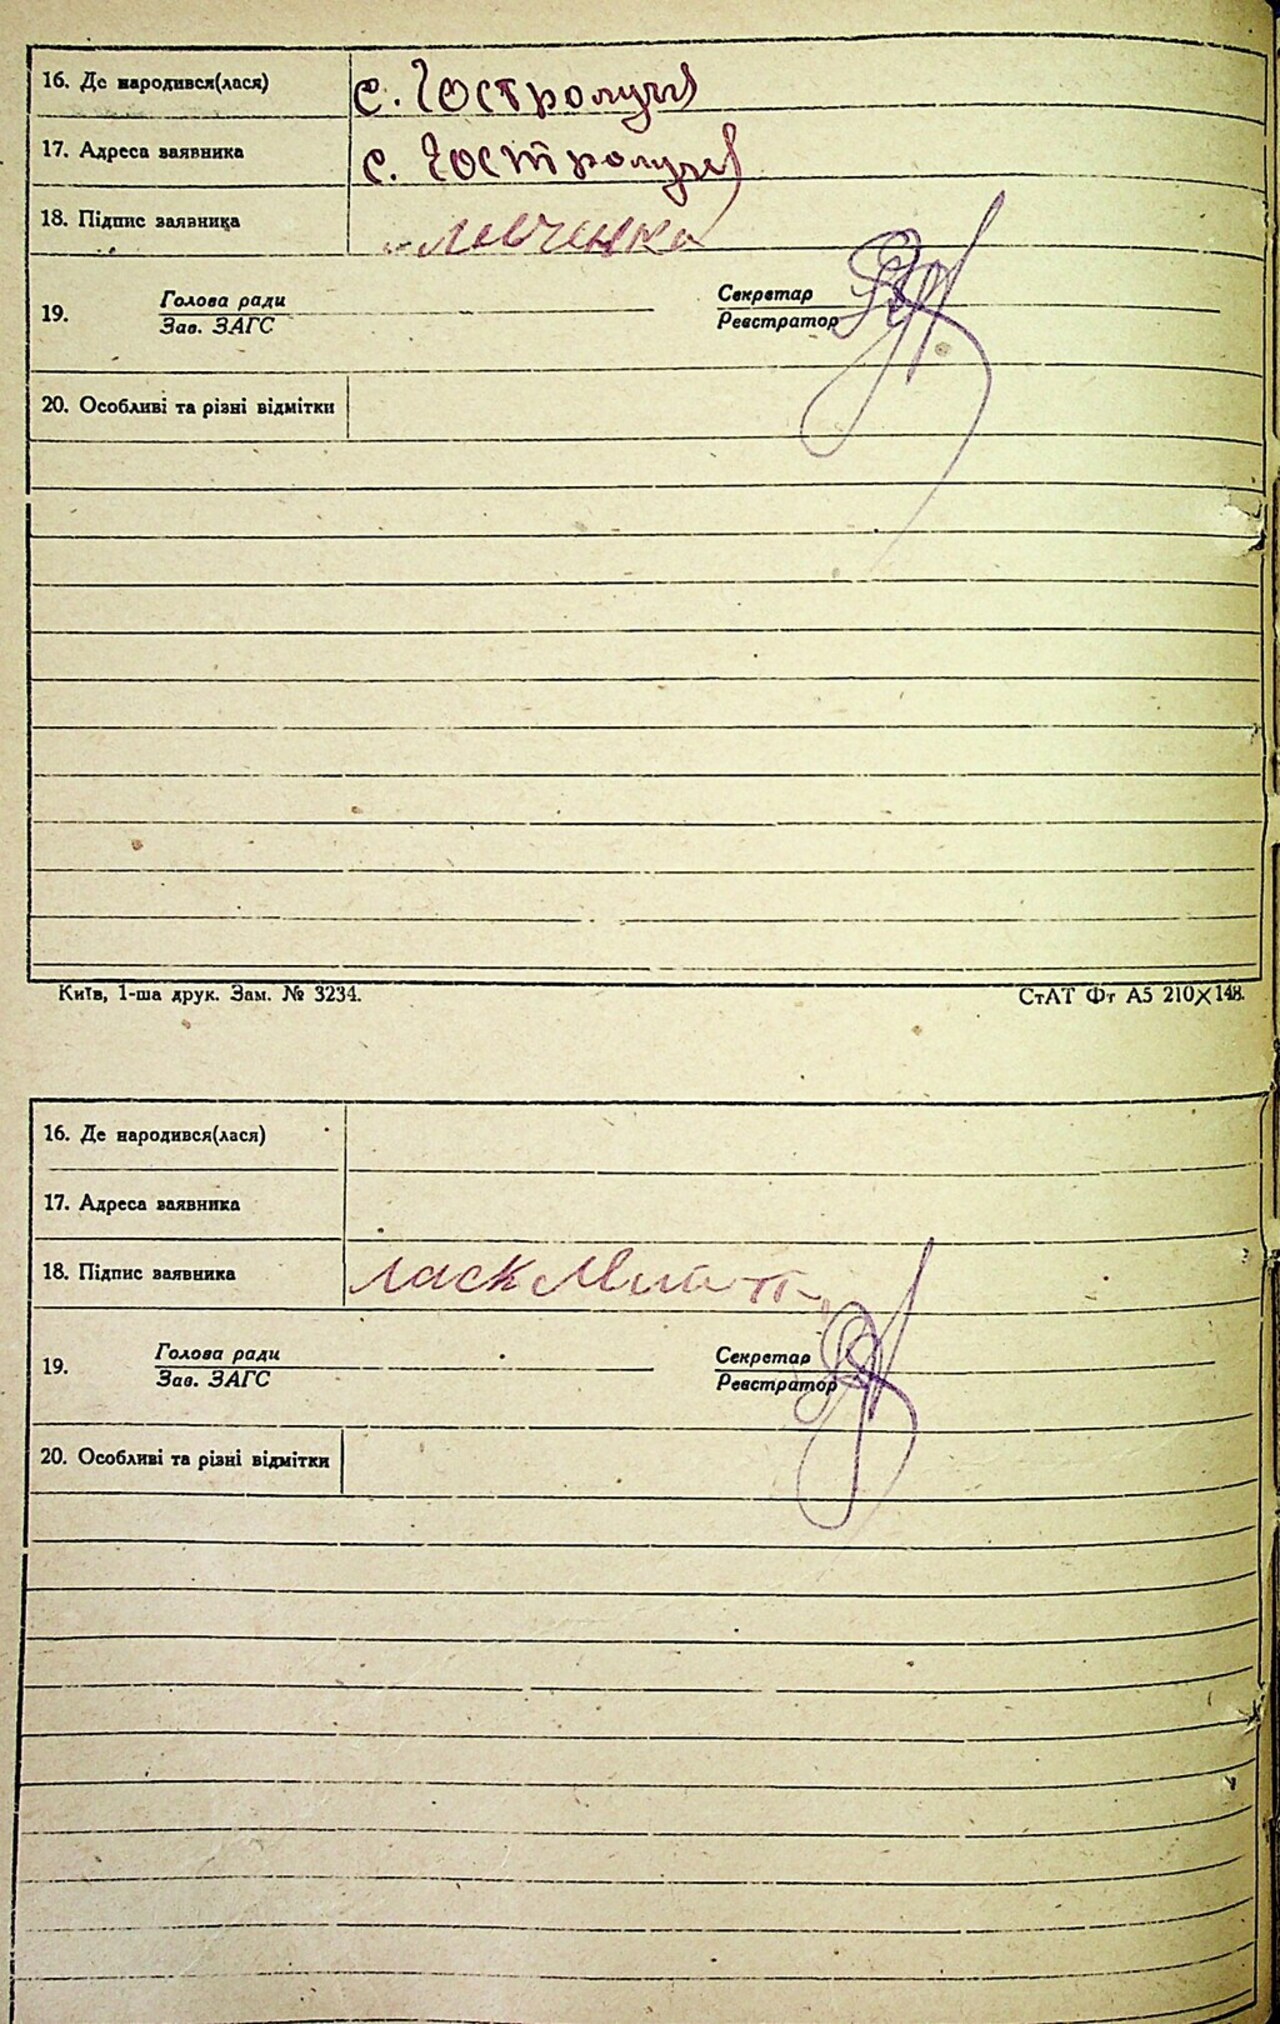 16. Де народився(лася) с. Гостролуччя
17. Адреса заявника с. Гостролуччя
18. Підпис заявника Левченко
19. Голова ради
Зав. ЗАГС
Секретар
Реєстратор
20. Особливі та різні відмітки
Київ, 1-ша друк. Зам. № 3234. СтАТ Фт А5 210×148.
16. Де народився(лася)
17. Адреса заявника
18. Підпис заявника
19. Голова ради
Зав. ЗАГС
Секретар
Реєстратор
20. Особливі та різні відмітки